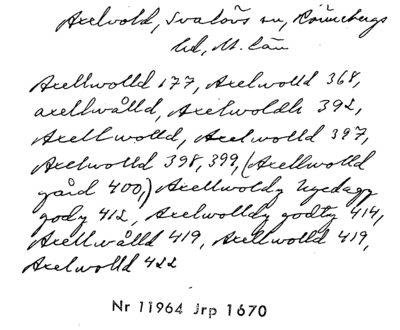 Axelvold, Svalövs sn, Rönnebergs
hd, M. län
Axellwolld 177, Axelwolld 368,
axellwålld, Axelwoldh 392,
Axellwolld, Axelwolld 397,
Axelwolld 398, 399, (Axellwolld
gård 400,) Axellwoldz
godz 412, Axelwolldz godtz 414,
Axellwålld 419, Axellwolld 419,
Axelwolld 422
Nr 11964 Jrp 1670